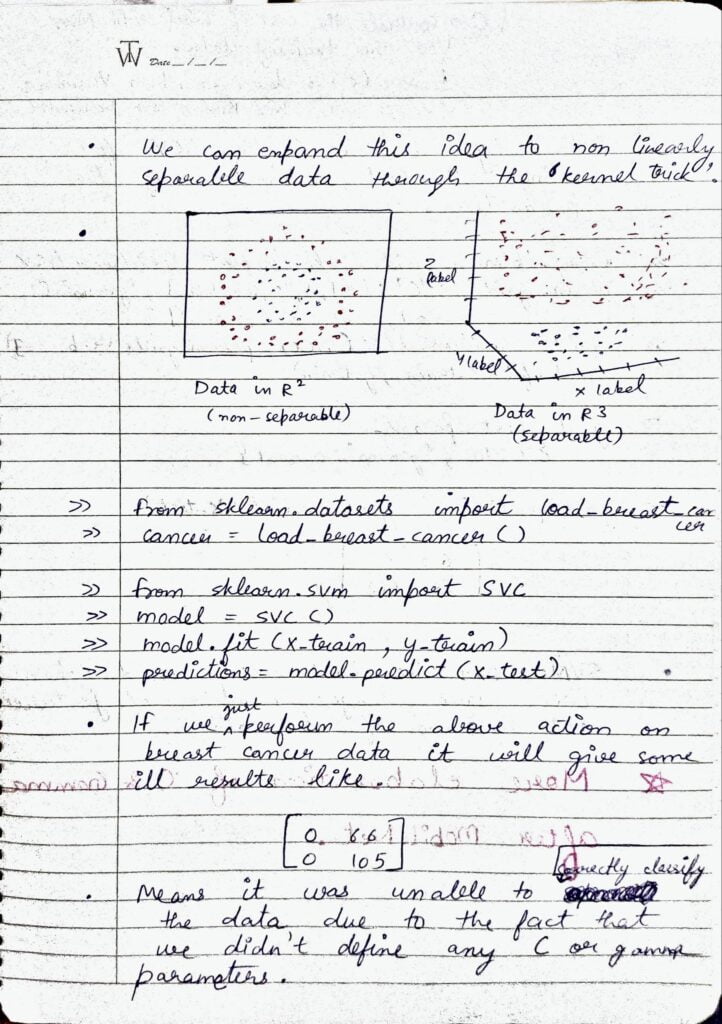 TW
Date __/__/__
• We can expand this idea to non linearly
separable data through the 'kernel trick'.
•
z
label
y label
x label
Data in R²
(non-separable)
Data in R3
(separable)
>> from sklearn.datasets import load_breast_cancer
>> cancer = load_breast_cancer()
>> from sklearn.svm import SVC
>> model = SVC()
>> model.fit(x_train, y_train)
>> predictions = model.predict(x_test)
• If we just perform the above action on
breast cancer data it will give some
ill results like.
[0 66
0 105]
• Means it was unable to correctly classify
the data due to the fact that
we didn't define any C or gamma
parameters.